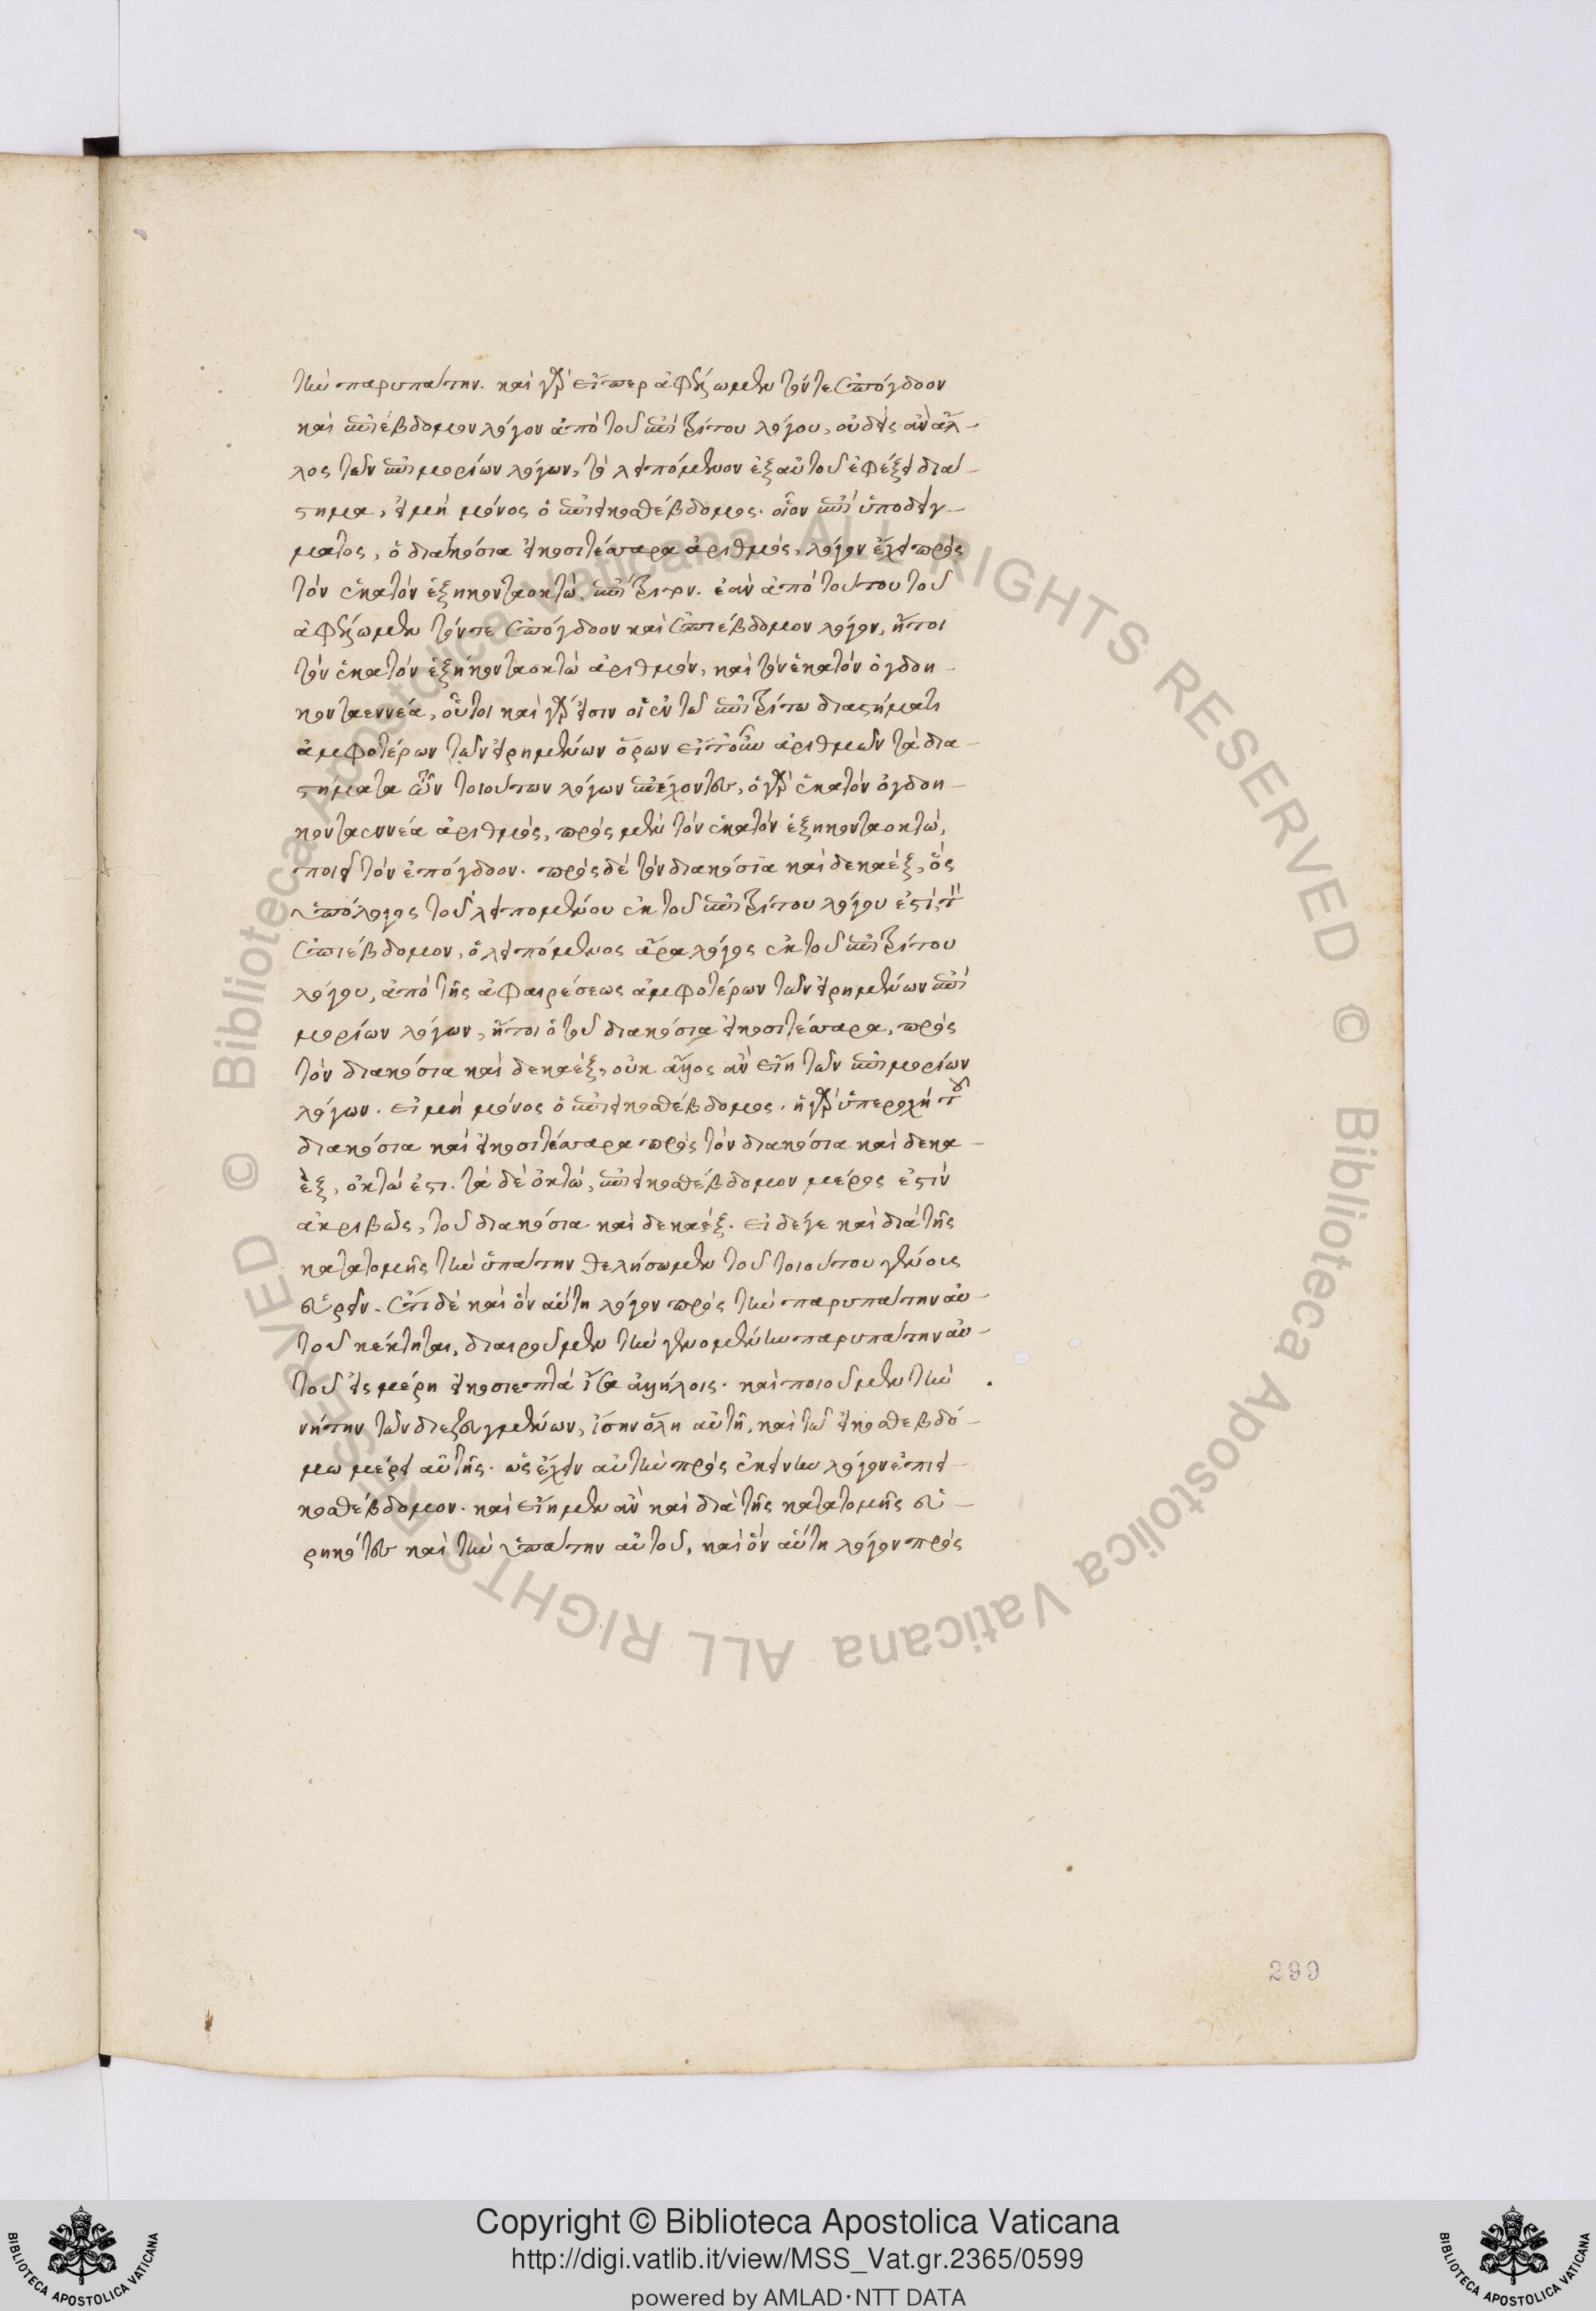 τὴν παρυπάτην. καὶ γὰρ εἴπερ ἀφέλωμεν τόν τε ἐπόγδοον
καὶ ἐπιέβδομον λόγον ἀπὸ τοῦ ἐπιτρίτου λόγου, οὐδεὶς ἂν ἄλ-
λος τῶν ἐπιμορίων λόγων, τὸ λειπόμενον ἐξ αὐτοῦ ἐφέξει διά-
στημα, εἰ μὴ μόνος ὁ ἐπιεικοσθέβδομος. οἷον ἐπὶ ὑποδείγ-
ματος, ὁ διακόσια εἰκοσιτέσσαρα ἀριθμός, λόγον ἔχει πρὸς
τὸν ἑκατὸν ἑξηκονταοκτώ, ἐπίτριτον. ἐὰν ἀπὸ τούτου τοῦ
ἀφέλωμεν τόν τε ἐπόγδοον καὶ ἐπιέβδομον λόγον, ἤτοι
τὸν ἑκατὸν ἑξηκονταοκτὼ ἀριθμόν, καὶ τὸν ἑκατὸν ὀγδοη-
κονταεννέα, οὗτοι καὶ γάρ εἰσιν οἱ ἐν τῷ ἐπιτρίτῳ διαστήματι
ἀμφοτέρων τῶν εἰρημένων ὅρων ἀριθμῶν τὰ δια-
στήματα τῶν τοιούτων λόγων ἐπέχοντες, ὁ γὰρ ἑκατὸν ὀγδοη-
κονταεννέα ἀριθμός, πρὸς μὲν τὸν ἑκατὸν ἑξηκονταοκτώ,
ποιεῖ τὸν ἐπόγδοον. πρὸς δὲ τὸν διακόσια καὶ δεκαέξ, ὅς
ὑπόλογος τοῦ λειπομένου ἐκ τοῦ ἐπιτρίτου λόγου ἐστί, τὸν
ἐπιέβδομον, ὁ λειπόμενος ἄρα λόγος ἐκ τοῦ ἐπιτρίτου
λόγου, ἀπὸ τῆς ἀφαιρέσεως ἀμφοτέρων τῶν εἰρημένων ἐπι
μορίων λόγων, ἤτοι ὁ τοῦ διακόσια εἰκοσιτέσσαρα, πρὸς
τὸν διακόσια καὶ δεκαέξ, οὐκ ἄλλος ἂν εἴη τῶν ἐπιμορίων
λόγων. εἰ μὴ μόνος ὁ ἐπιεικοσθέβδομος. ἡ γὰρ ὑπεροχὴ τοῦ
διακόσια καὶ εἰκοσιτέσσαρα πρὸς τὸν διακόσια καὶ δεκα-
έξ, ὀκτώ ἐστι. τὰ δὲ ὀκτώ, ἐπιεικοσθέβδομον μέρος ἐστὶν
ἀκριβῶς, τοῦ διακόσια καὶ δεκαέξ. εἰ δέ γε καὶ διὰ τῆς
κατατομῆς τὴν ὑπάτην θελήσωμεν τοῦ τοιούτου γένους
εὑρεῖν. ἔτι δὲ καὶ ὃν αὕτη λόγον πρὸς τὴν παρυπάτην αὐ-
τοῦ κέκτηται, διαιροῦμεν τὴν γενομένην παρυπάτην αὐ-
τοῦ εἰς μέρη εἰκοσιεπτὰ ἴσα ἀλλήλοις. καὶ ποιοῦμεν τὴν
νήτην τῶν διεζευγμένων, ἴσην ὅλῃ αὐτῇ, καὶ τῷ εἰκοσθεβδό-
μῳ μέρει αὐτῆς. ὡς ἔχειν αὐτὴν πρὸς ἐκείνην λόγον ἐπιει-
κοσθέβδομον. καὶ εἴημεν ἂν καὶ διὰ τῆς κατατομῆς εὑ-
ρηκότες καὶ τὴν ὑπάτην αὐτοῦ, καὶ ὃν αὕτη λόγον πρὸς
299
Copyright © Biblioteca Apostolica Vaticana
http://digi.vatlib.it/view/MSS_Vat.gr.2365/0599
powered by AMLAD·NTT DATA